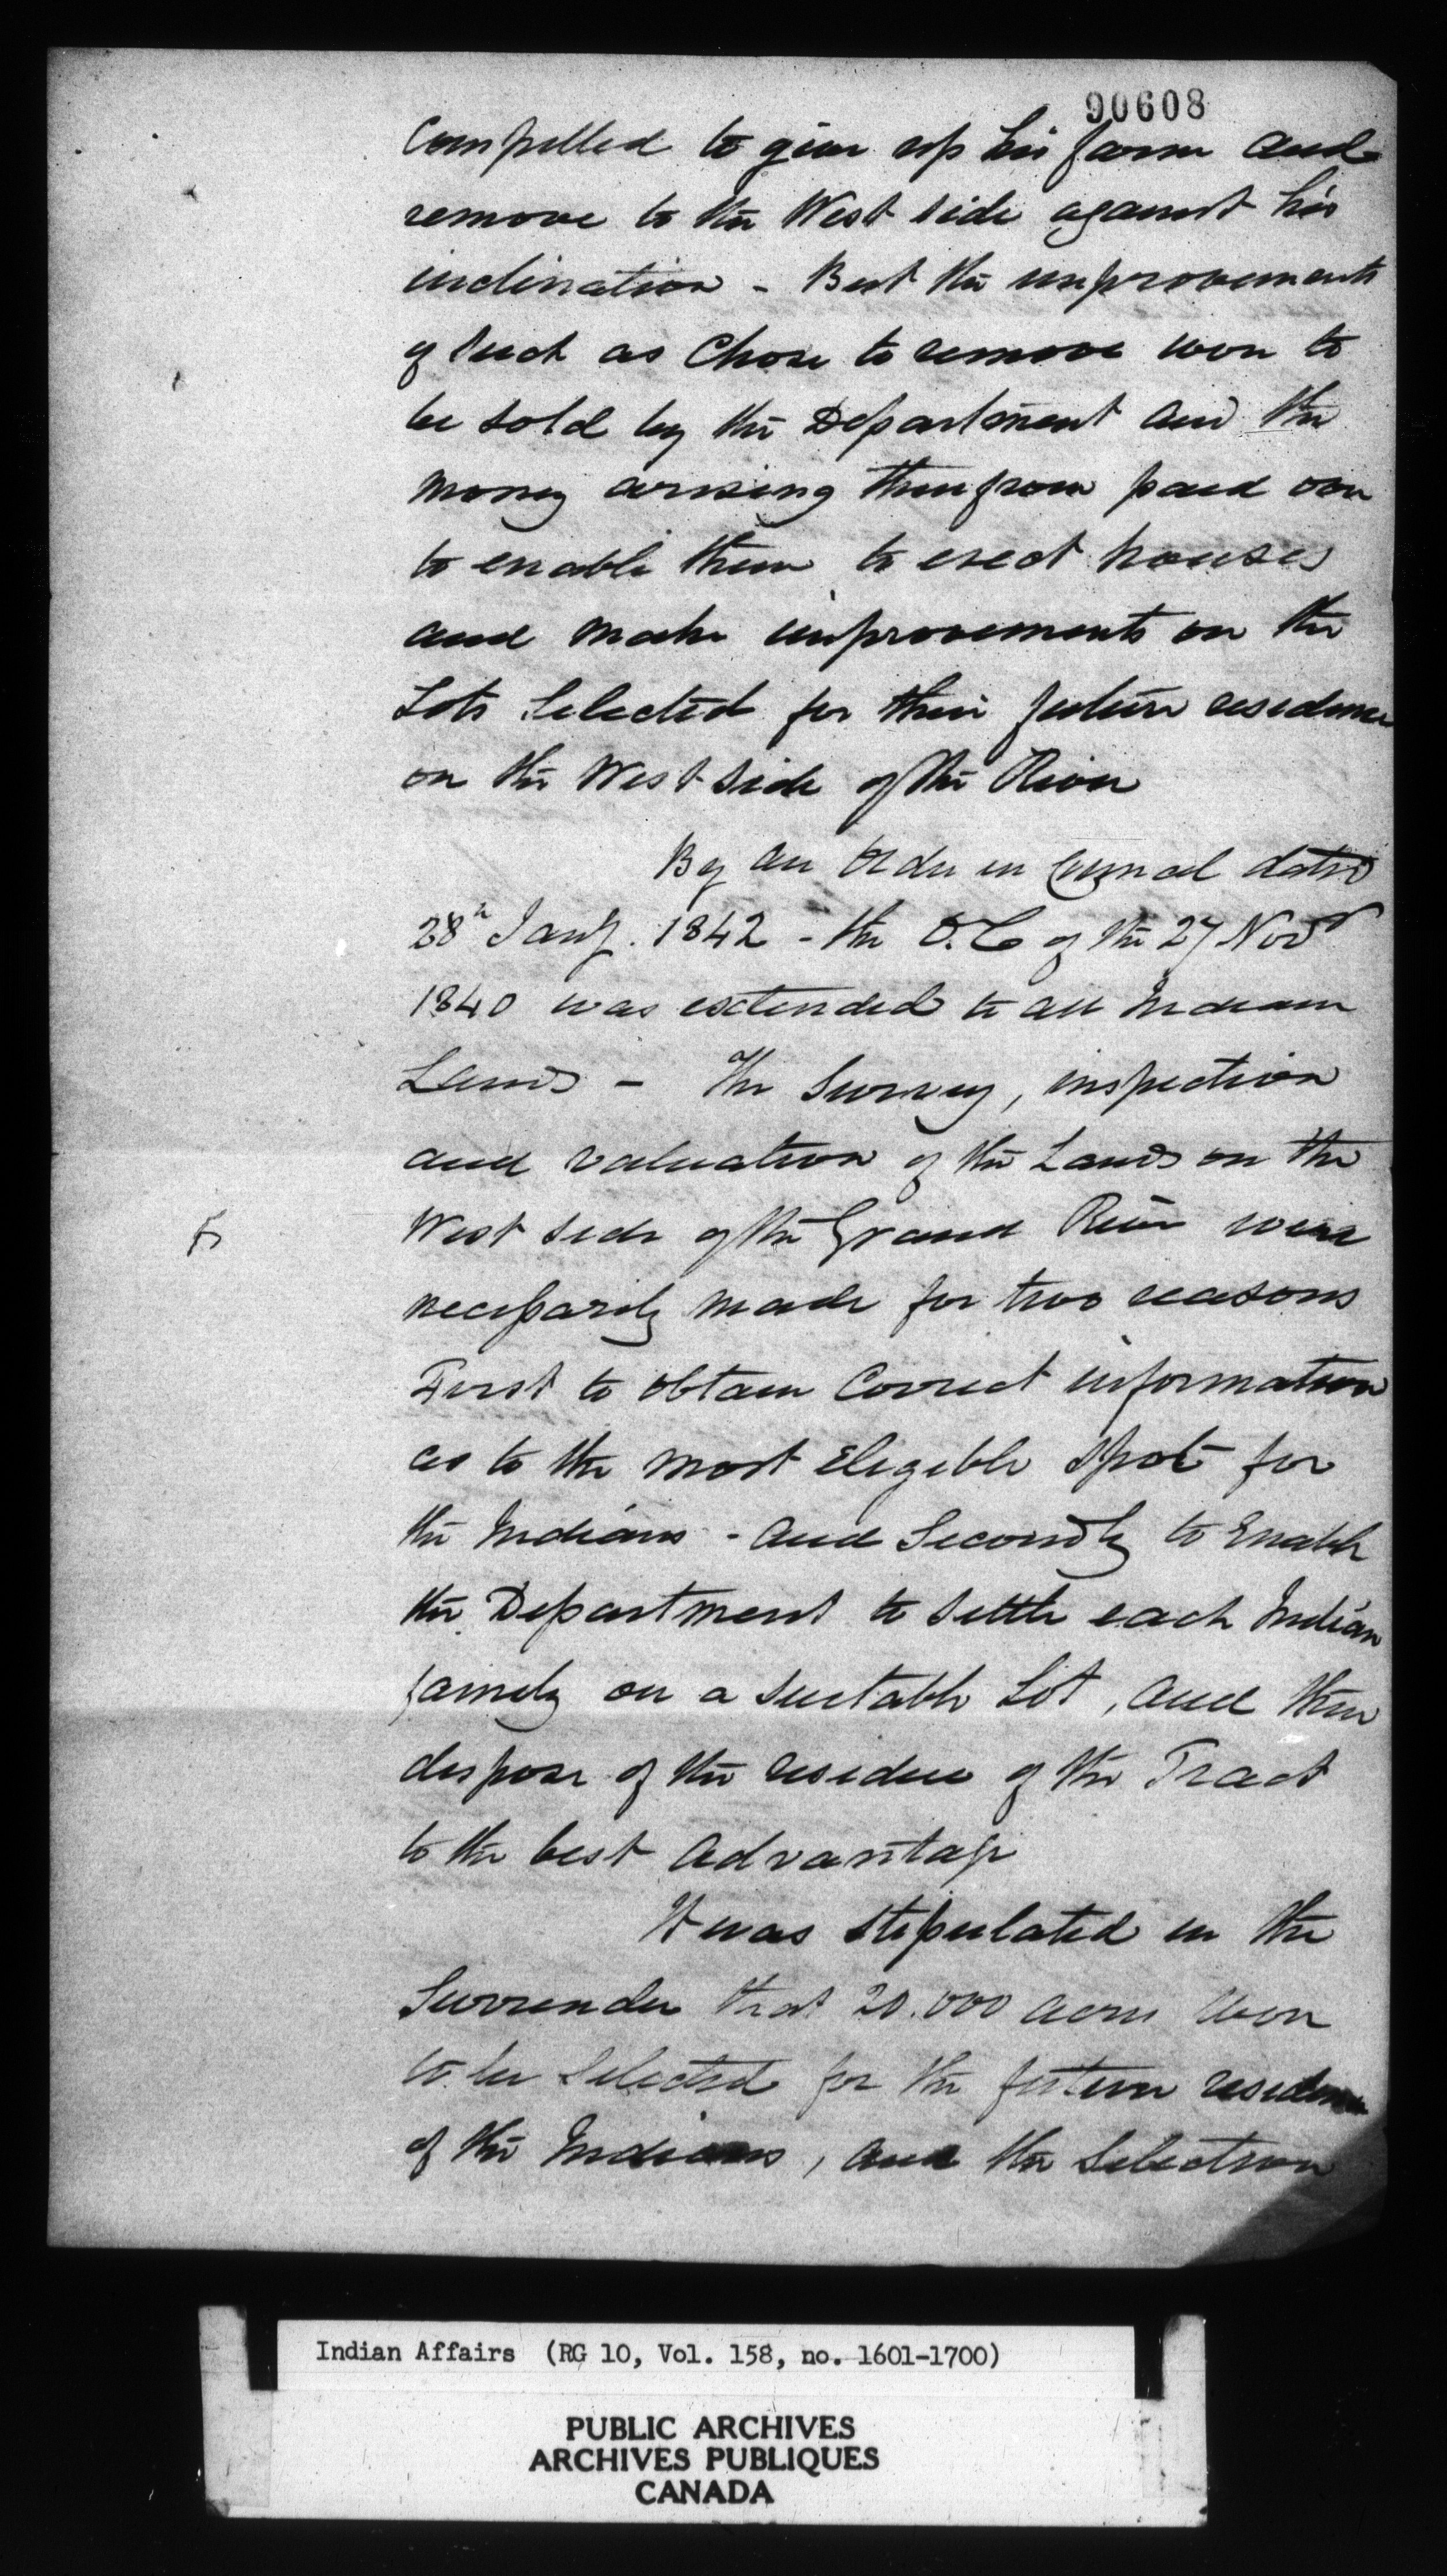 90608
Compelled to give up his farm and
remove to the West side against his
inclination - But the improvements
of such as Chose to remove were to
be sold by the Department and the
money arising therefrom paid over
to enable them to erect houses
and make improvements on the
Lots Selected for their future residence
on the West side of the River
By an Order in Council dated
28th Jany. 1842 - the O.C of the 27 Novr
1840 was extended to all Indian
Lands - The Survey, inspection
and valuation of the Lands on the
West side of the Grand River were
necessarily made for two reasons
First to obtain Correct information
as to the most Eligible spot for
the Indians - and Secondly to Enable
the Department to settle each Indian
family on a suitable Lot, and then
dispose of the residue of the Tract
to the best advantage
It was stipulated in the
Surrender that 20.000 acres were
to be Selected for the future residence
of the Indians, and the Selection
Indian Affairs (RG 10, Vol. 158, no. 1601-1700)
PUBLIC ARCHIVES
ARCHIVES PUBLIQUES
CANADA